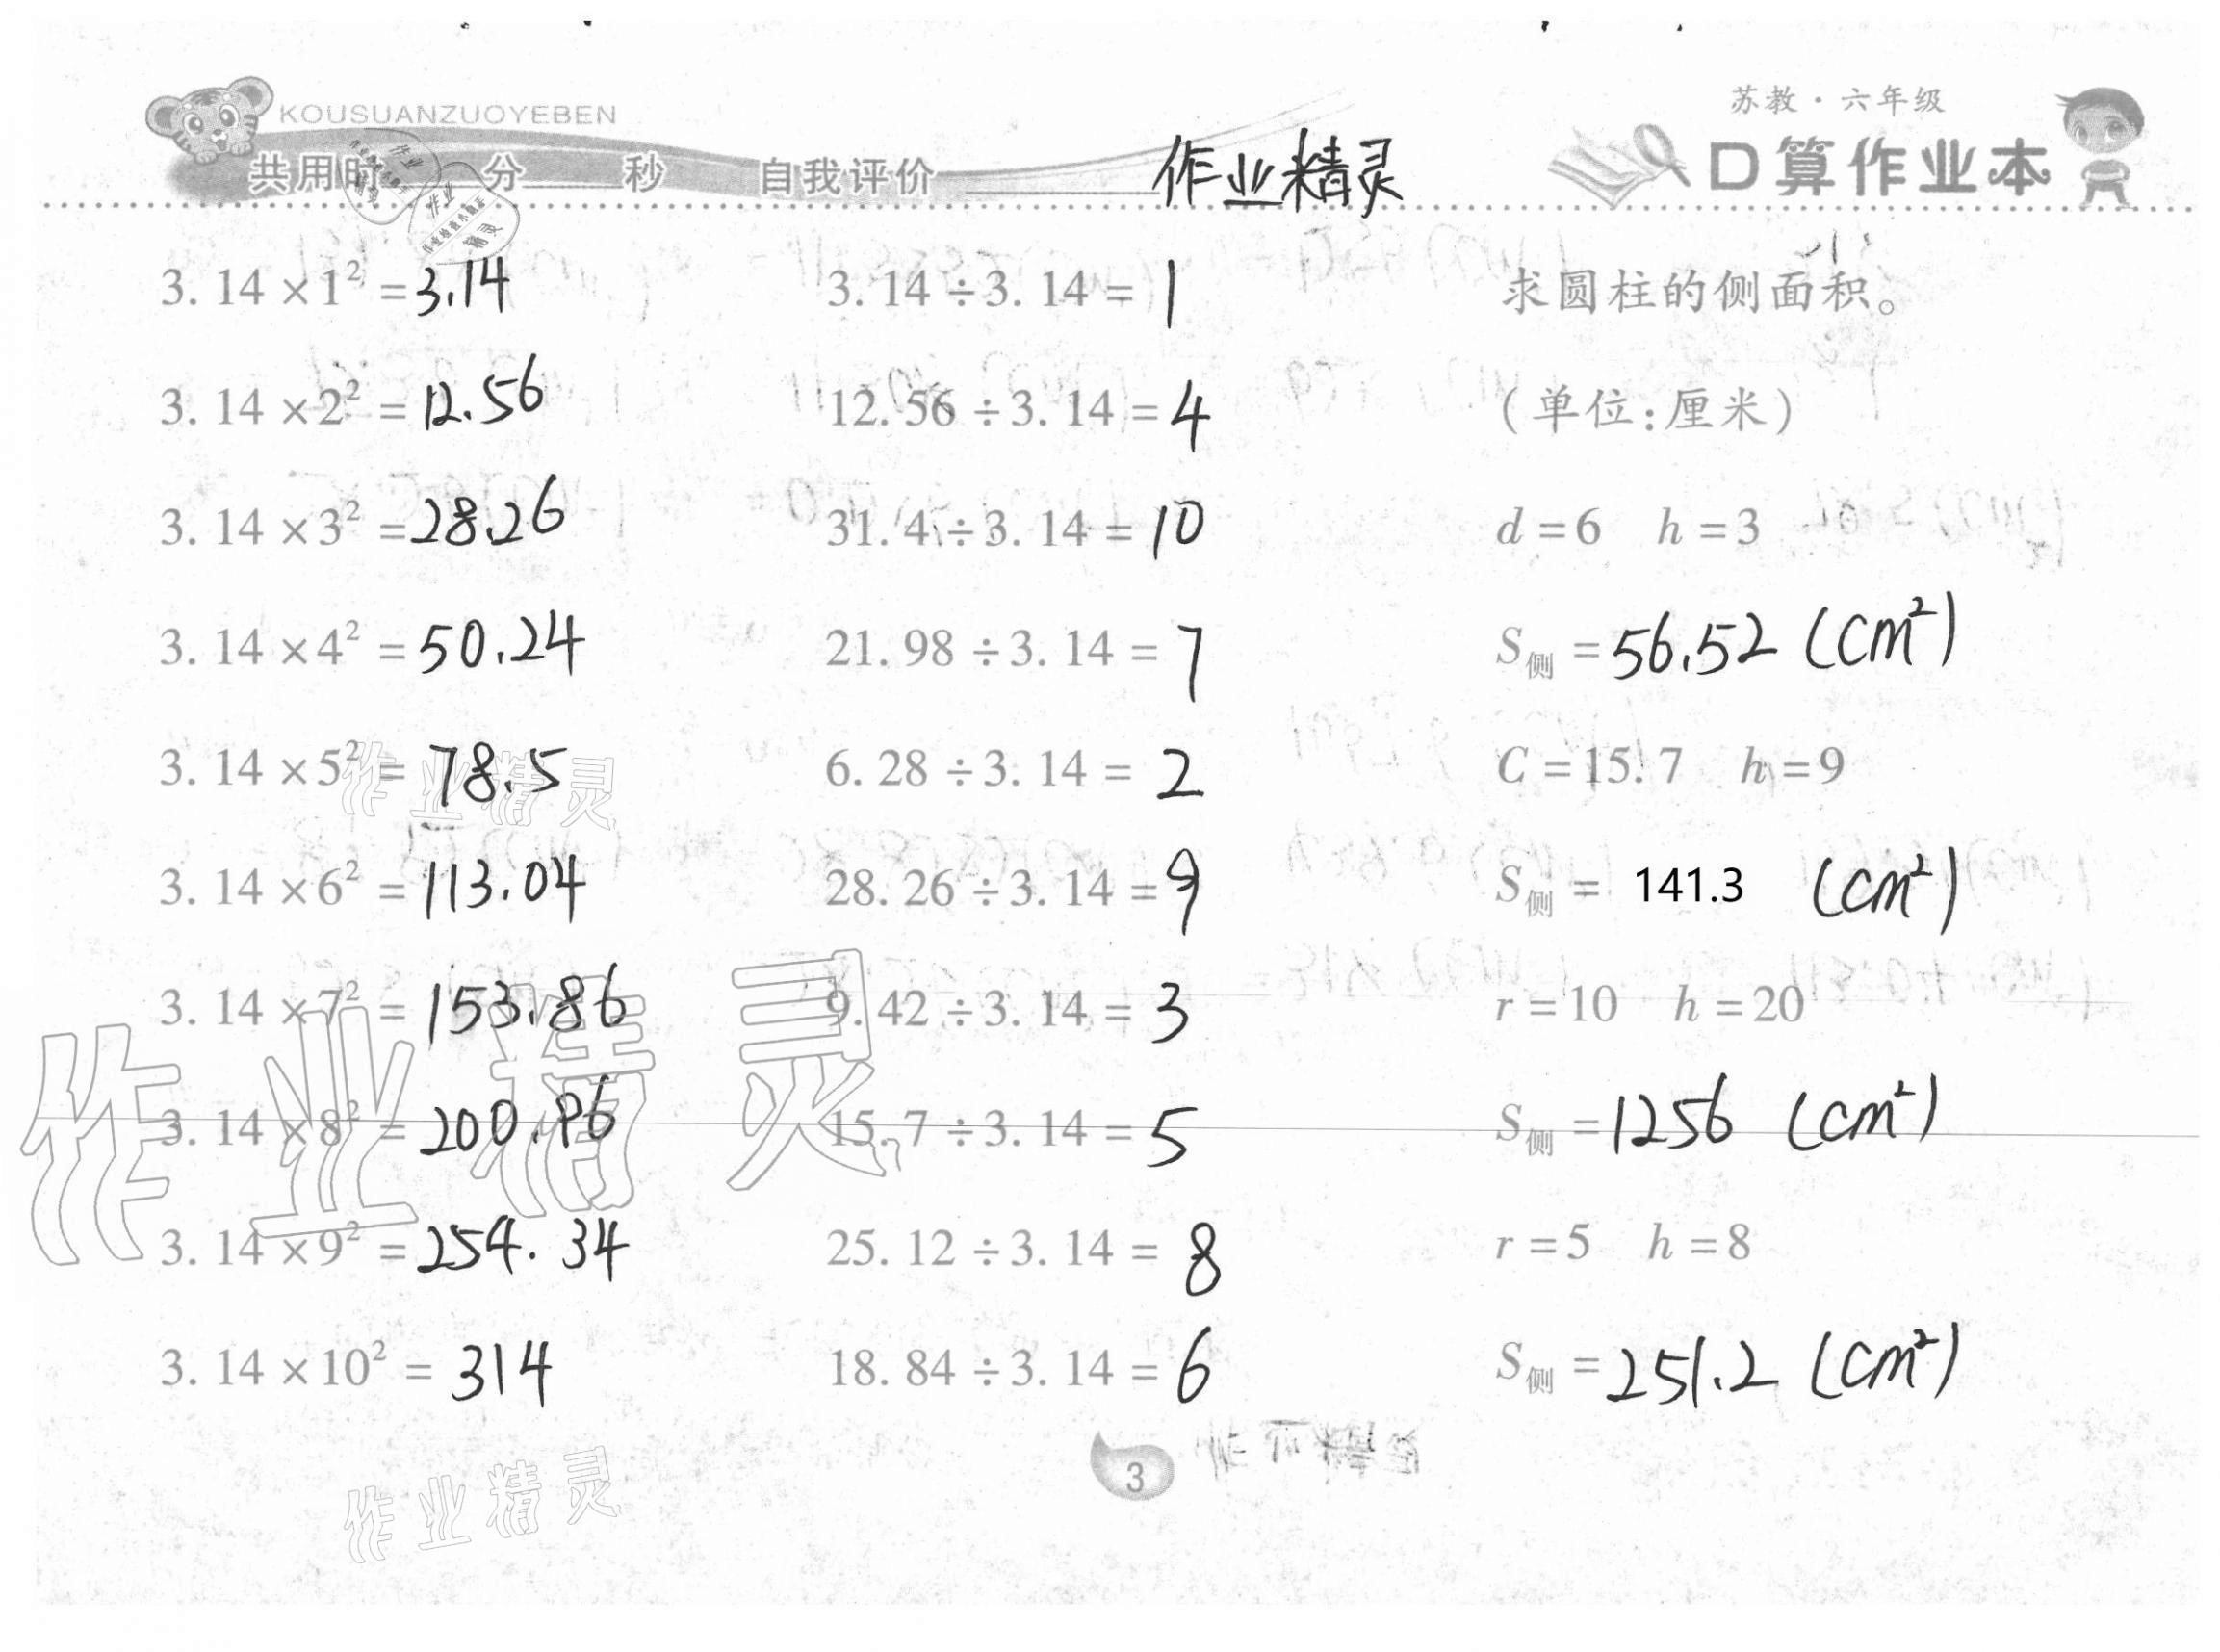 KOUSUANZUOYEBEN
苏教·六年级
共用时 分 秒 自我评价 作业精灵 口算作业本
3.14×1²=3.14
3.14×2²=12.56
3.14×3²=28.26
3.14×4²=50.24
3.14×5²=78.5
3.14×6²=113.04
3.14×7²=153.86
3.14×8²=200.96
3.14×9²=254.34
3.14×10²=314
3.14÷3.14=1
12.56÷3.14=4
31.4÷3.14=10
21.98÷3.14=7
6.28÷3.14=2
28.26÷3.14=9
9.42÷3.14=3
15.7÷3.14=5
25.12÷3.14=8
18.84÷3.14=6
求圆柱的侧面积。
(单位:厘米)
d=6 h=3
S侧=56.52 (cm²)
C=15.7 h=9
S侧= 141.3 (cm²)
r=10 h=20
S侧=1256 (cm²)
r=5 h=8
S侧=251.2 (cm²)
3
作业精灵
作业精灵
作业精灵